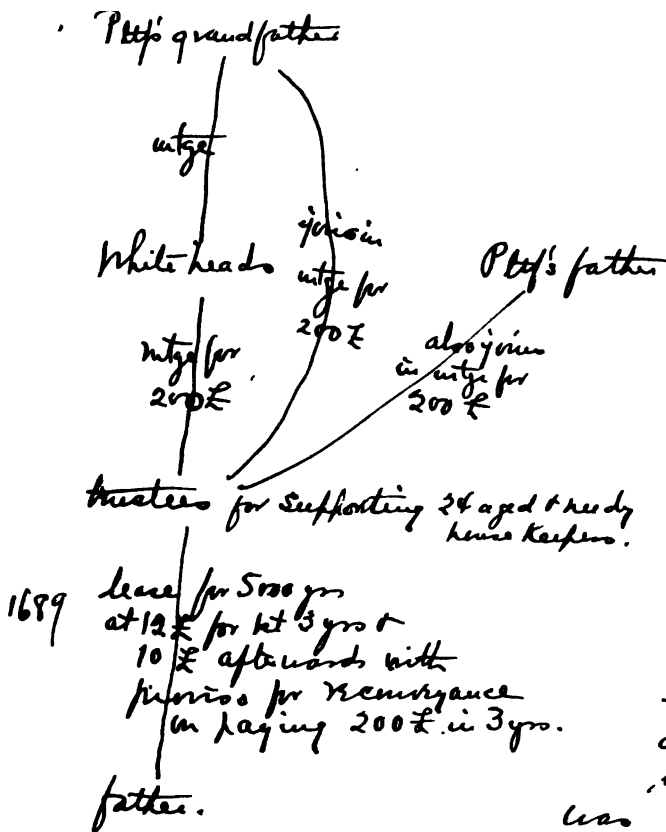 Pltf's grandfather
mtge
joins in
mtge for
200 £
Whiteheads
Pltf's father
mtge for
200 £
also joins
in mtge for
200 £
trustees for supporting 24 aged & needy
house keepers.
1689
lease for 5000 yrs
at 12 £ for 1st 3 yrs &
10 £ afterwards with
proviso for reconveyance
on paying 200 £ in 3 yrs.
father.
was